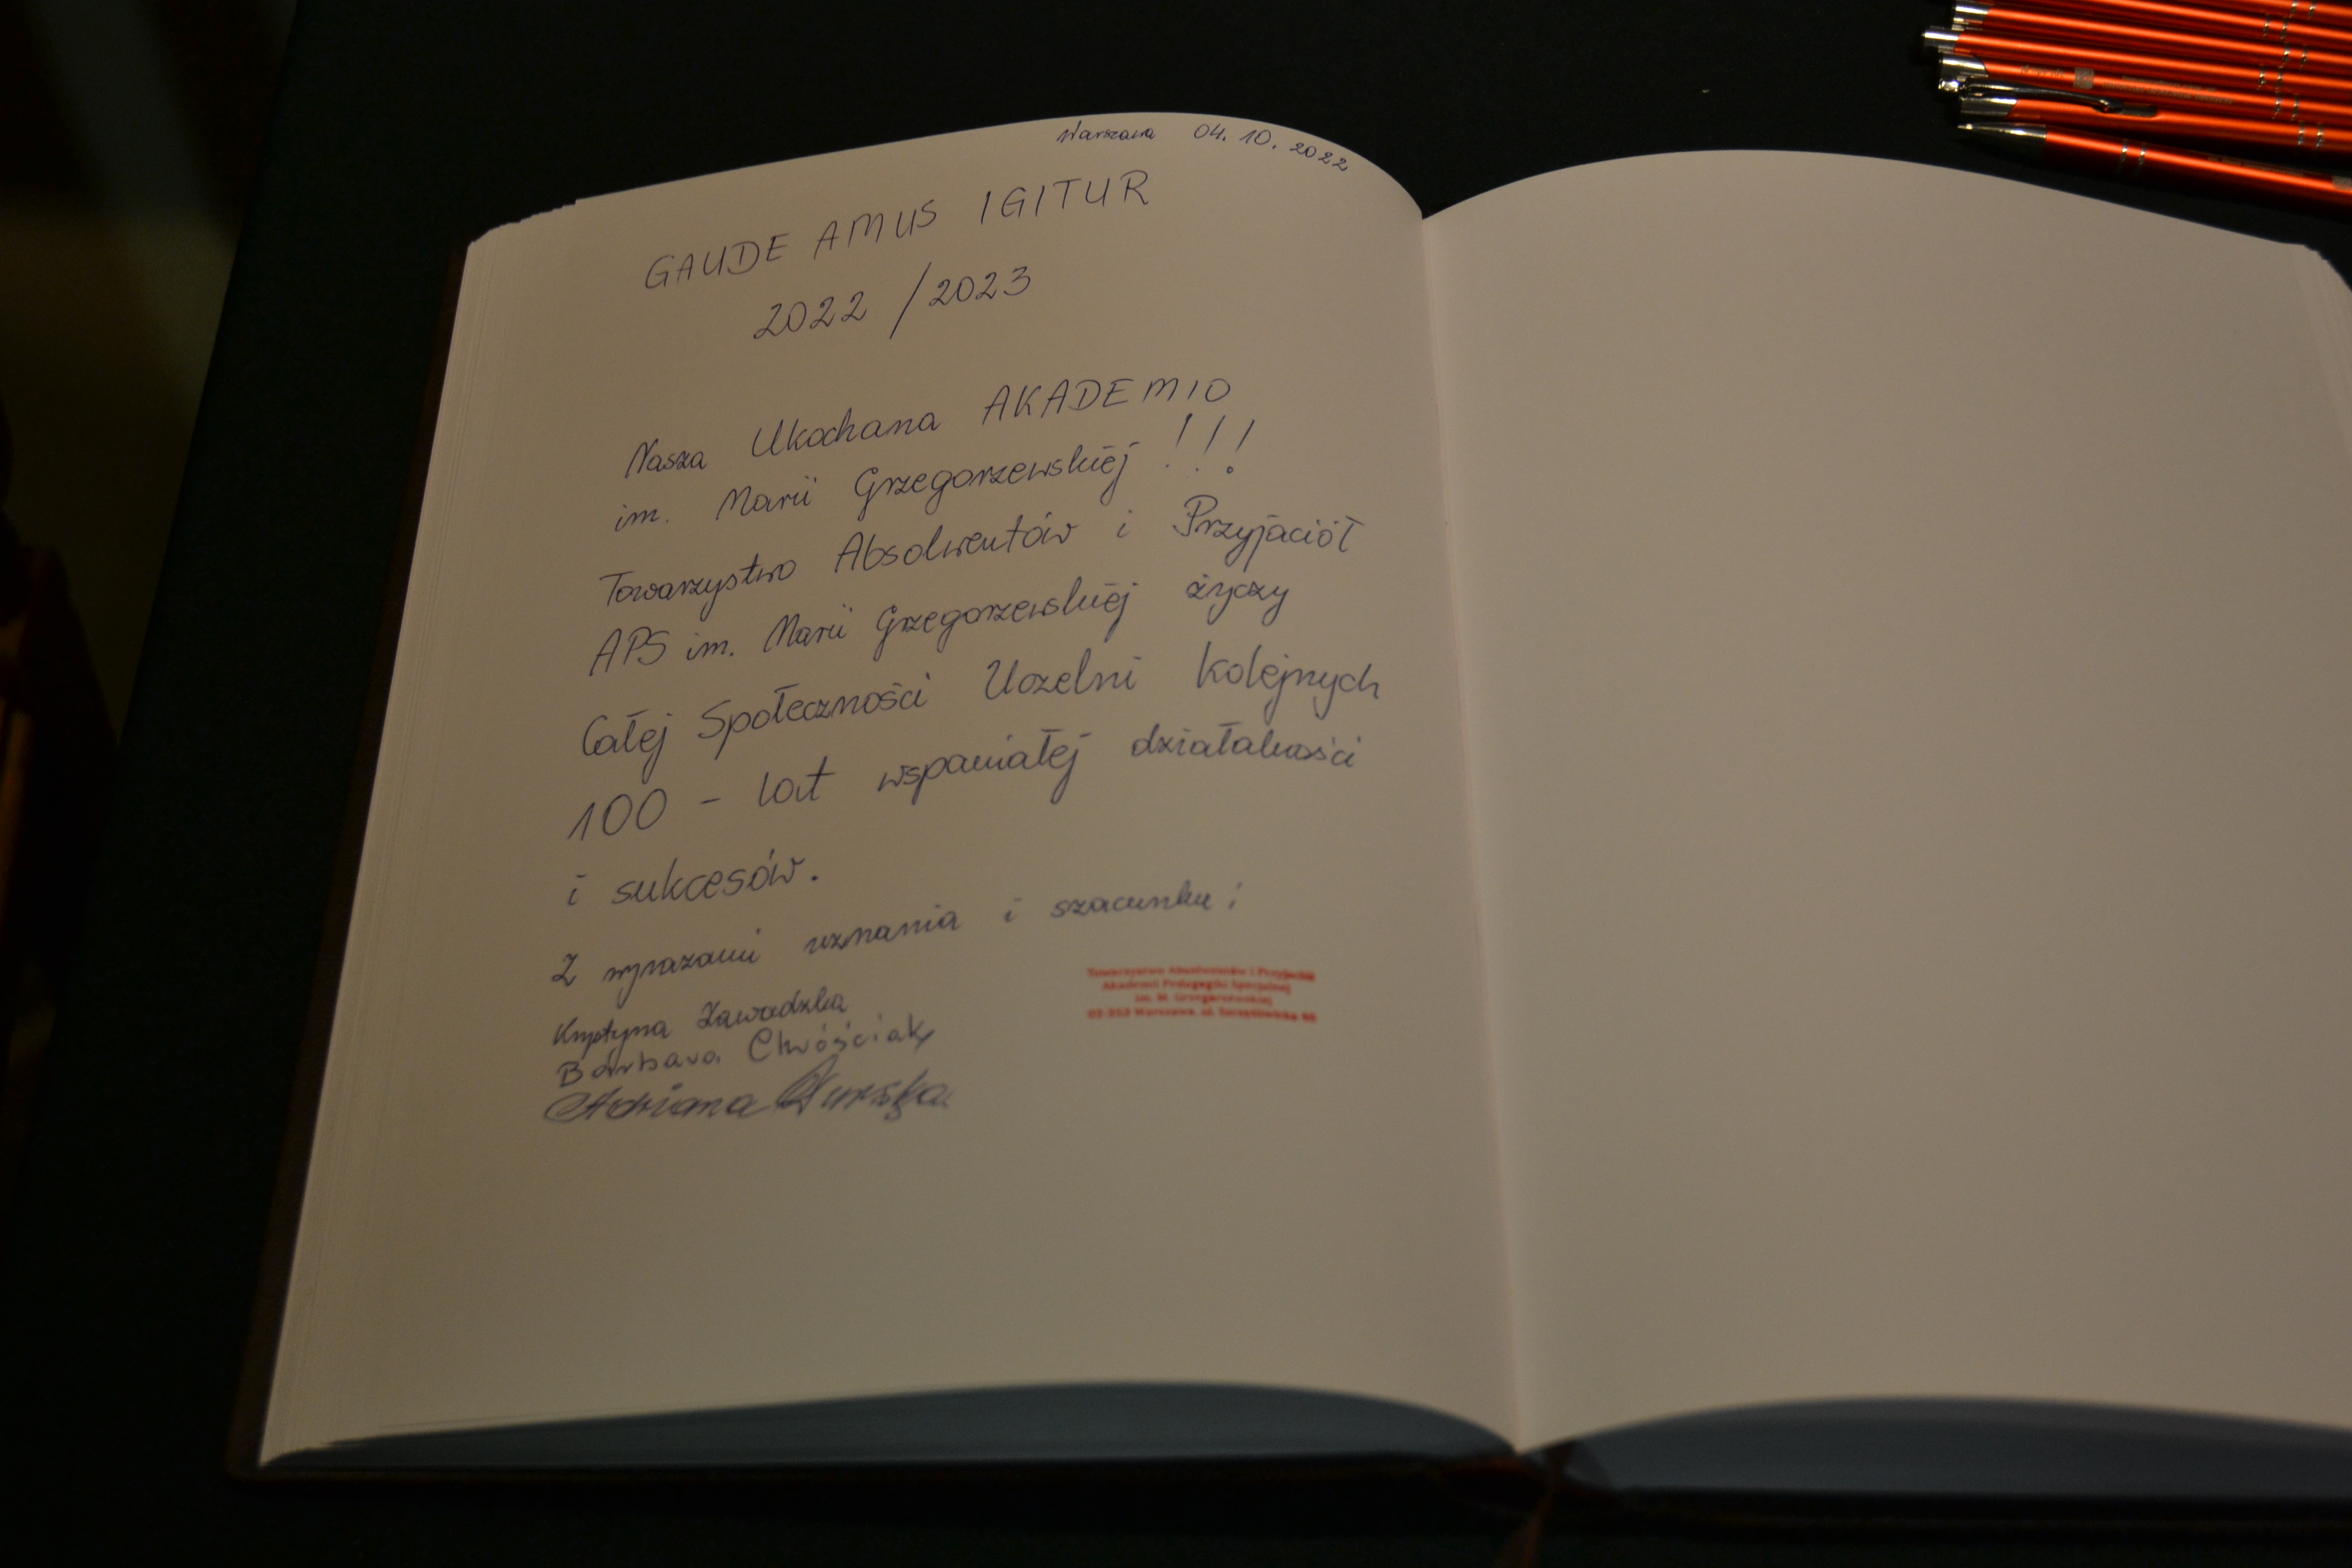 Warszawa 04.10.2022
GAUDE AMUS IGITUR
2022 / 2023
Nasza Ukochana AKADEMIO
im. Marii Grzegorzewskiej !!!
Towarzystwo Absolwentów i Przyjaciół
APS im. Marii Grzegorzewskiej życzy
Całej Społeczności Uczelni kolejnych
100 - lat wspaniałej działalności
i sukcesów.
Z wyrazami uznania i szacunku;
Krystyna Zawadzka
Barbara Chróściak
Adriana
Towarzystwo Absolwentów i Przyjaciół
Akademii Pedagogiki Specjalnej
im. M. Grzegorzewskiej
02-353 Warszawa, ul. Szczęśliwicka 40